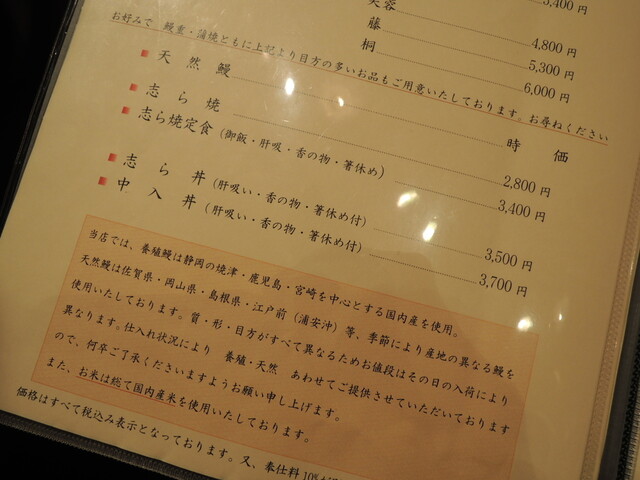 芙蓉 3,400 円
藤 4,800 円
桐 5,300 円
6,000 円
お好みで 鰻重・蒲焼ともに上記より目方の多いお品もご用意いたしております。お尋ねください
天然鰻 時価
志ら焼 2,800 円
志ら焼定食(御飯・肝吸・香の物・箸休め) 3,400 円
志ら丼(肝吸い・香の物・箸休め付) 3,500 円
中入丼(肝吸い・香の物・箸休め付) 3,700 円
当店では、養殖鰻は静岡の焼津・鹿児島・宮崎を中心とする国内産を使用。
天然鰻は佐賀県・岡山県・島根県・江戸前(浦安沖)等、季節により産地の異なる鰻を
使用いたしております。質・形・目方がすべて異なるためお値段はその日の入荷により
異なります。仕入れ状況により 養殖・天然 あわせてご提供させていただいております
ので、何卒ご了承くださいますようお願い申し上げます。
また、お米は総て国内産米を使用いたしております。
価格はすべて税込み表示となっております。又、奉仕料10%